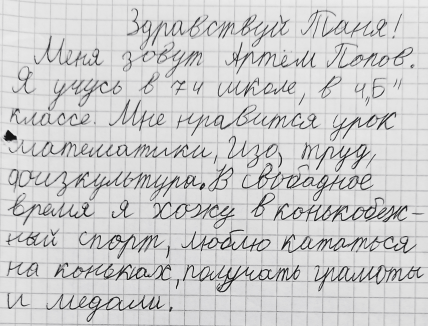 Здравствуй Таня!
Меня зовут Артём Попов.
Я учусь в 74 школе, в 4„Б"
классе. Мне нравится урок
математики, Изо, труд,
физкультура. В свободное
время я хожу в конькобеж-
ный спорт, люблю кататься
на коньках, получать грамоты
и медали.